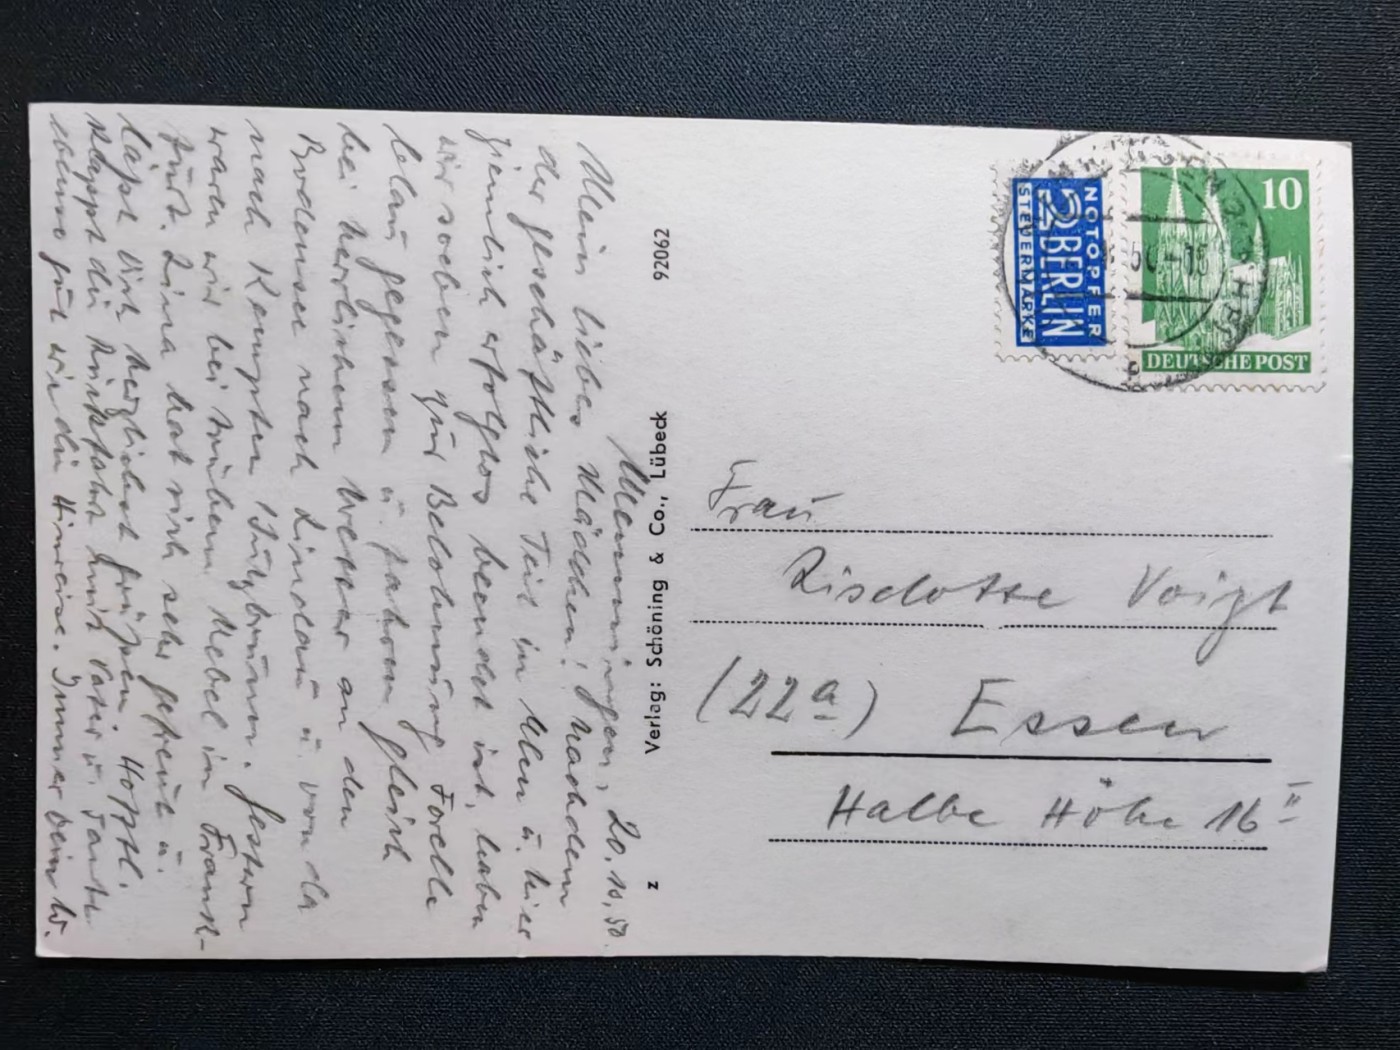 Memmingen, 20.10.50.
Mein liebes Mädchen! Nachdem
der geschäftliche Teil in Ulm u. hier
ziemlich erfolglos beendet ist, haben
wir soeben zur Belohnung Forelle
blau gegessen u. fahren gleich
bei herrlichem Wetter an den
Bodensee nach Lindau u. von da
nach Kempten. Gestern
waren wir bei trübem Nebel in Frank-
furt. Lina hat sich sehr gefreut u.
läßt Dich herzlichst grüßen. Hofftl.
klappt die Rückfahrt mit Vater u. Tante
ebenso gut wie die Hinreise. Immer Dein W.
92062
Verlag: Schöning & Co., Lübeck
z
NOTOPFER
2 BERLIN
STEUERMARKE
10
DEUTSCHE POST
Frau
Liselotte Voigt
(22a) Essen
Halbe Höhe 16 II